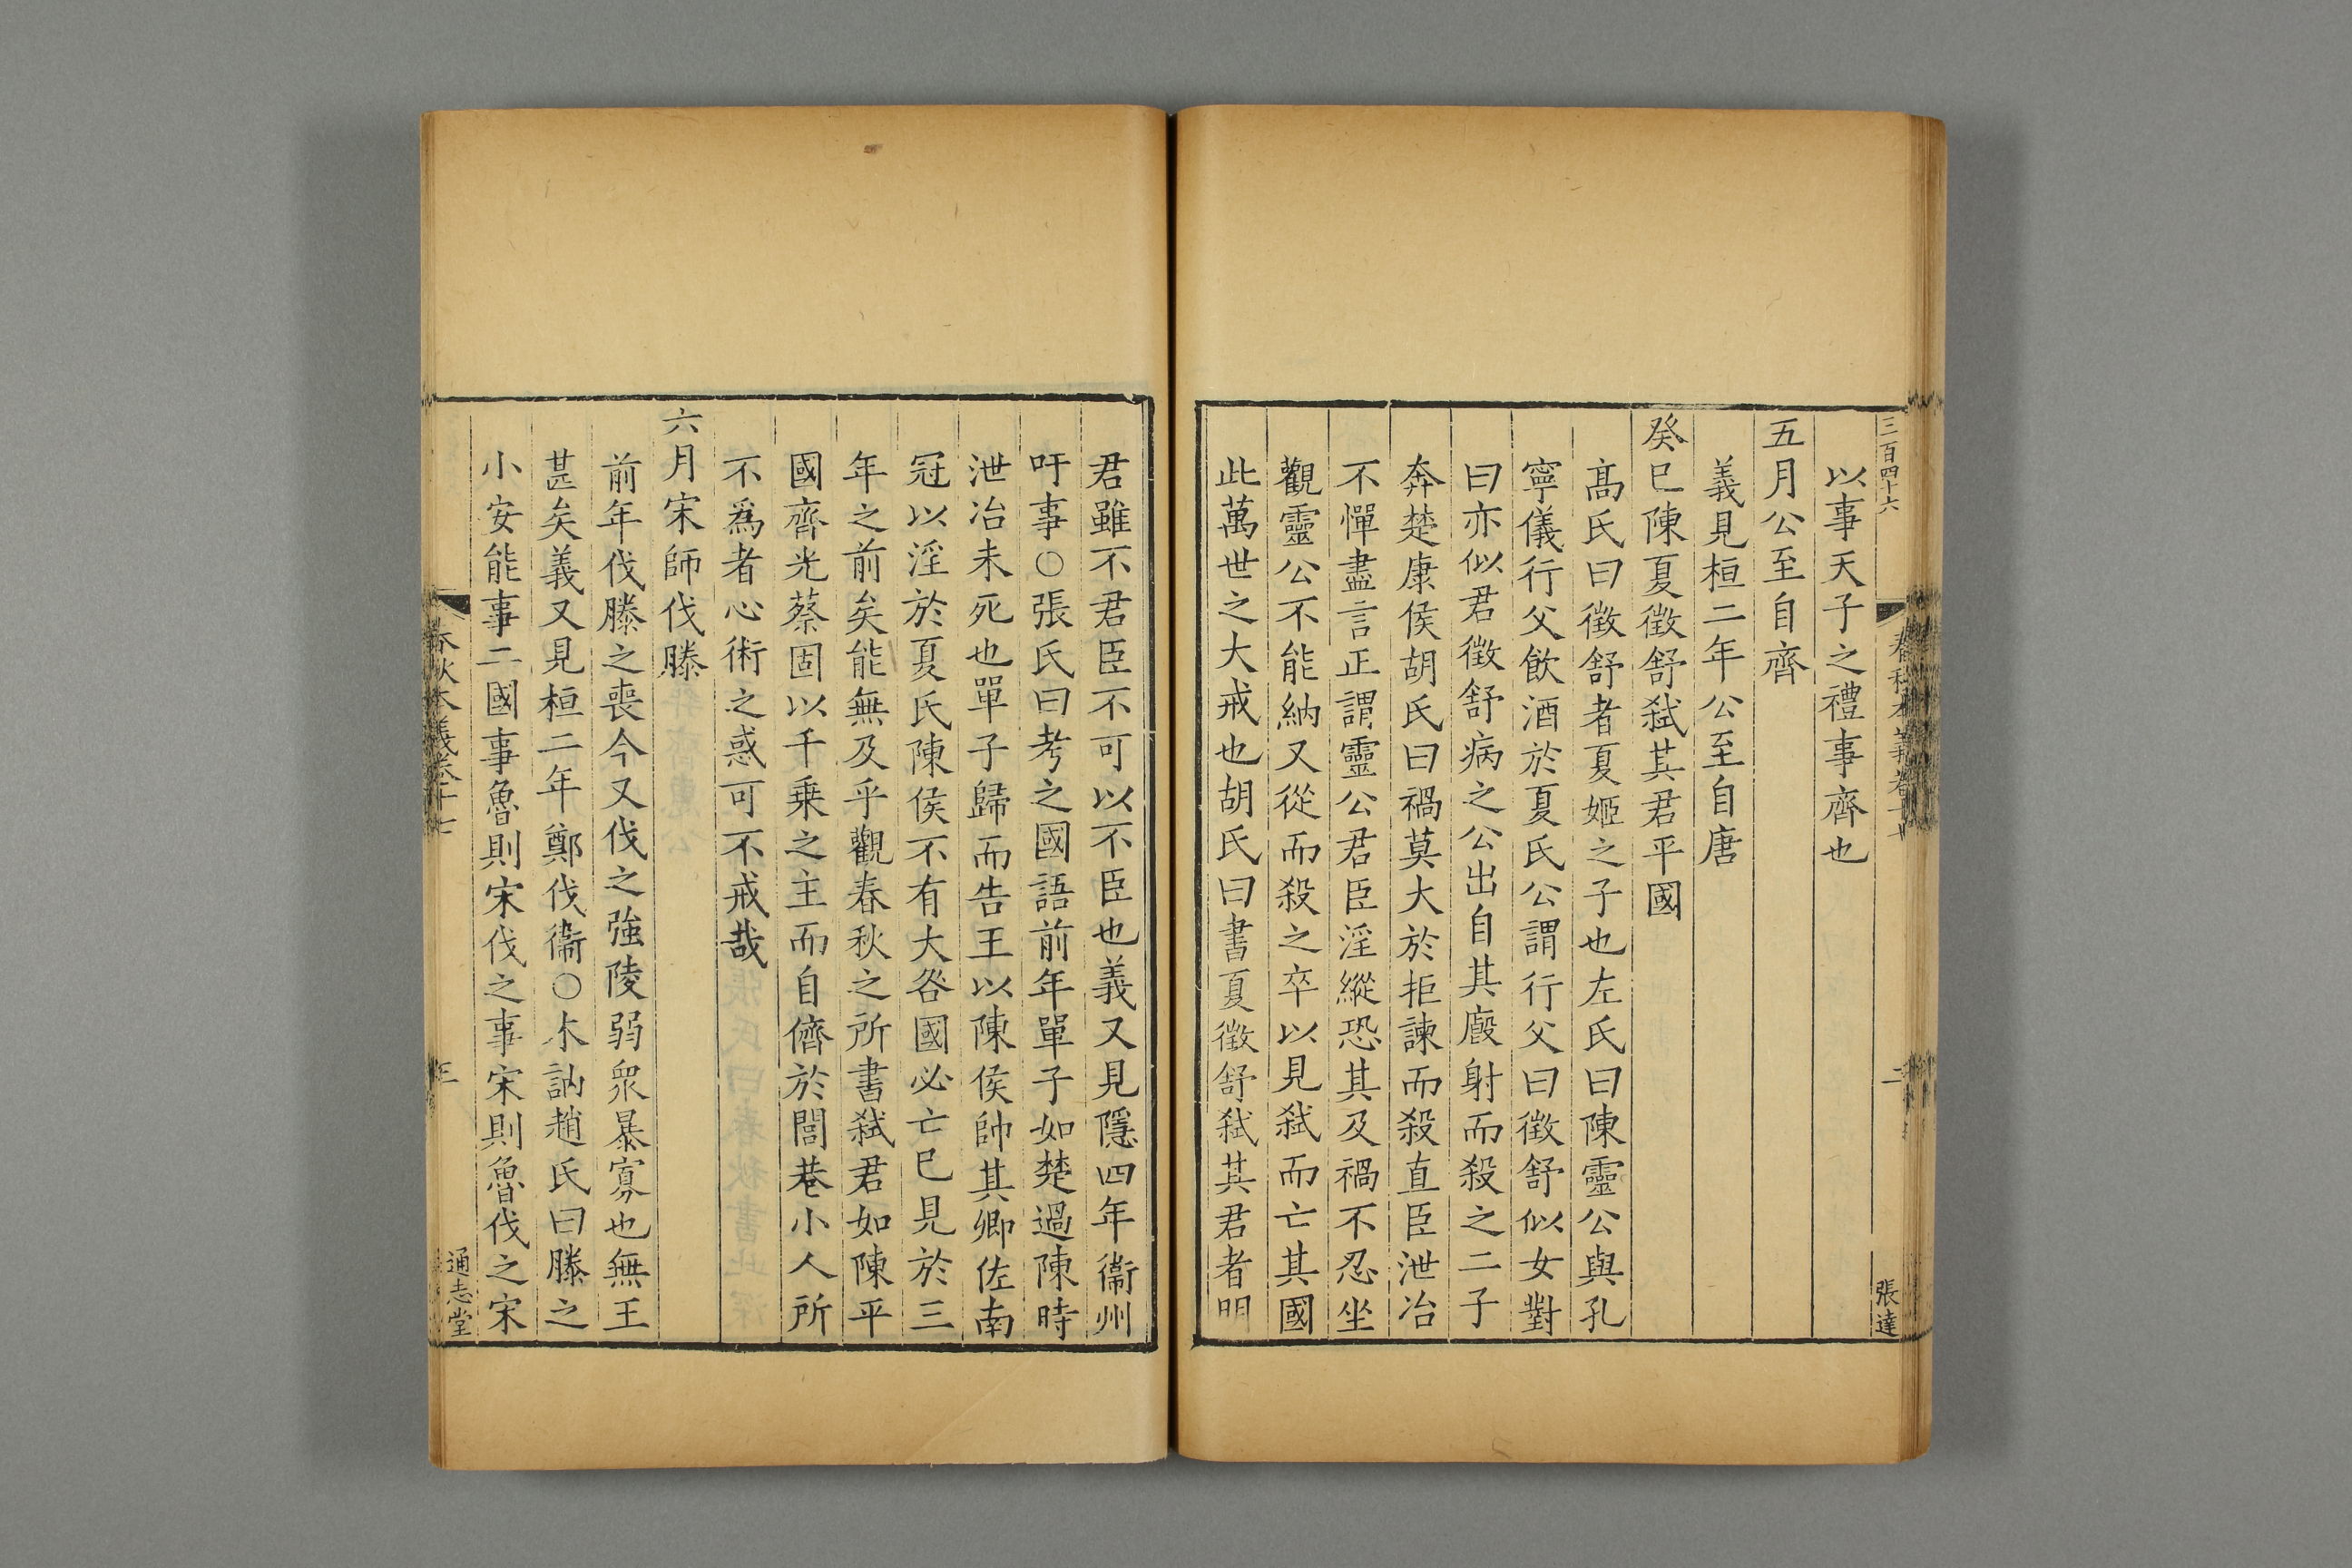 三百四十六
春秋本義卷十七
二
張達
以事天子之禮事齊也
五月公至自齊
義見桓二年公至自唐
癸巳陳夏徵舒弒其君平國
髙氏曰徵舒者夏姬之子也左氏曰陳靈公與孔
寧儀行父飲酒於夏氏公謂行父曰徵舒似女對
曰亦似君徵舒病之公出自其廏射而殺之二子
奔楚康侯胡氏曰禍莫大於拒諫而殺直臣泄冶
不憚盡言正謂靈公君臣淫縱恐其及禍不忍坐
觀靈公不能納又從而殺之卒以見弒而亡其國
此萬世之大戒也胡氏曰書夏徵舒弒其君者明
君雖不君臣不可以不臣也義又見隱四年衞州
吁事○張氏曰考之國語前年單子如楚過陳時
泄冶未死也單子歸而告王以陳侯帥其卿佐南
冠以淫於夏氏陳侯不有大咎國必亡巳見於三
年之前矣能無及乎觀春秋之所書弒君如陳平
國齊光蔡固以千乗之主而自儕於閭巷小人所
不爲者心術之惑可不戒哉
六月宋師伐滕
前年伐滕之喪今又伐之強陵弱衆暴寡也無王
甚矣義又見桓二年鄭伐衞○木訥趙氏曰滕之
小安能事二國事魯則宋伐之事宋則魯伐之宋
春秋本義卷十七
三
通志堂